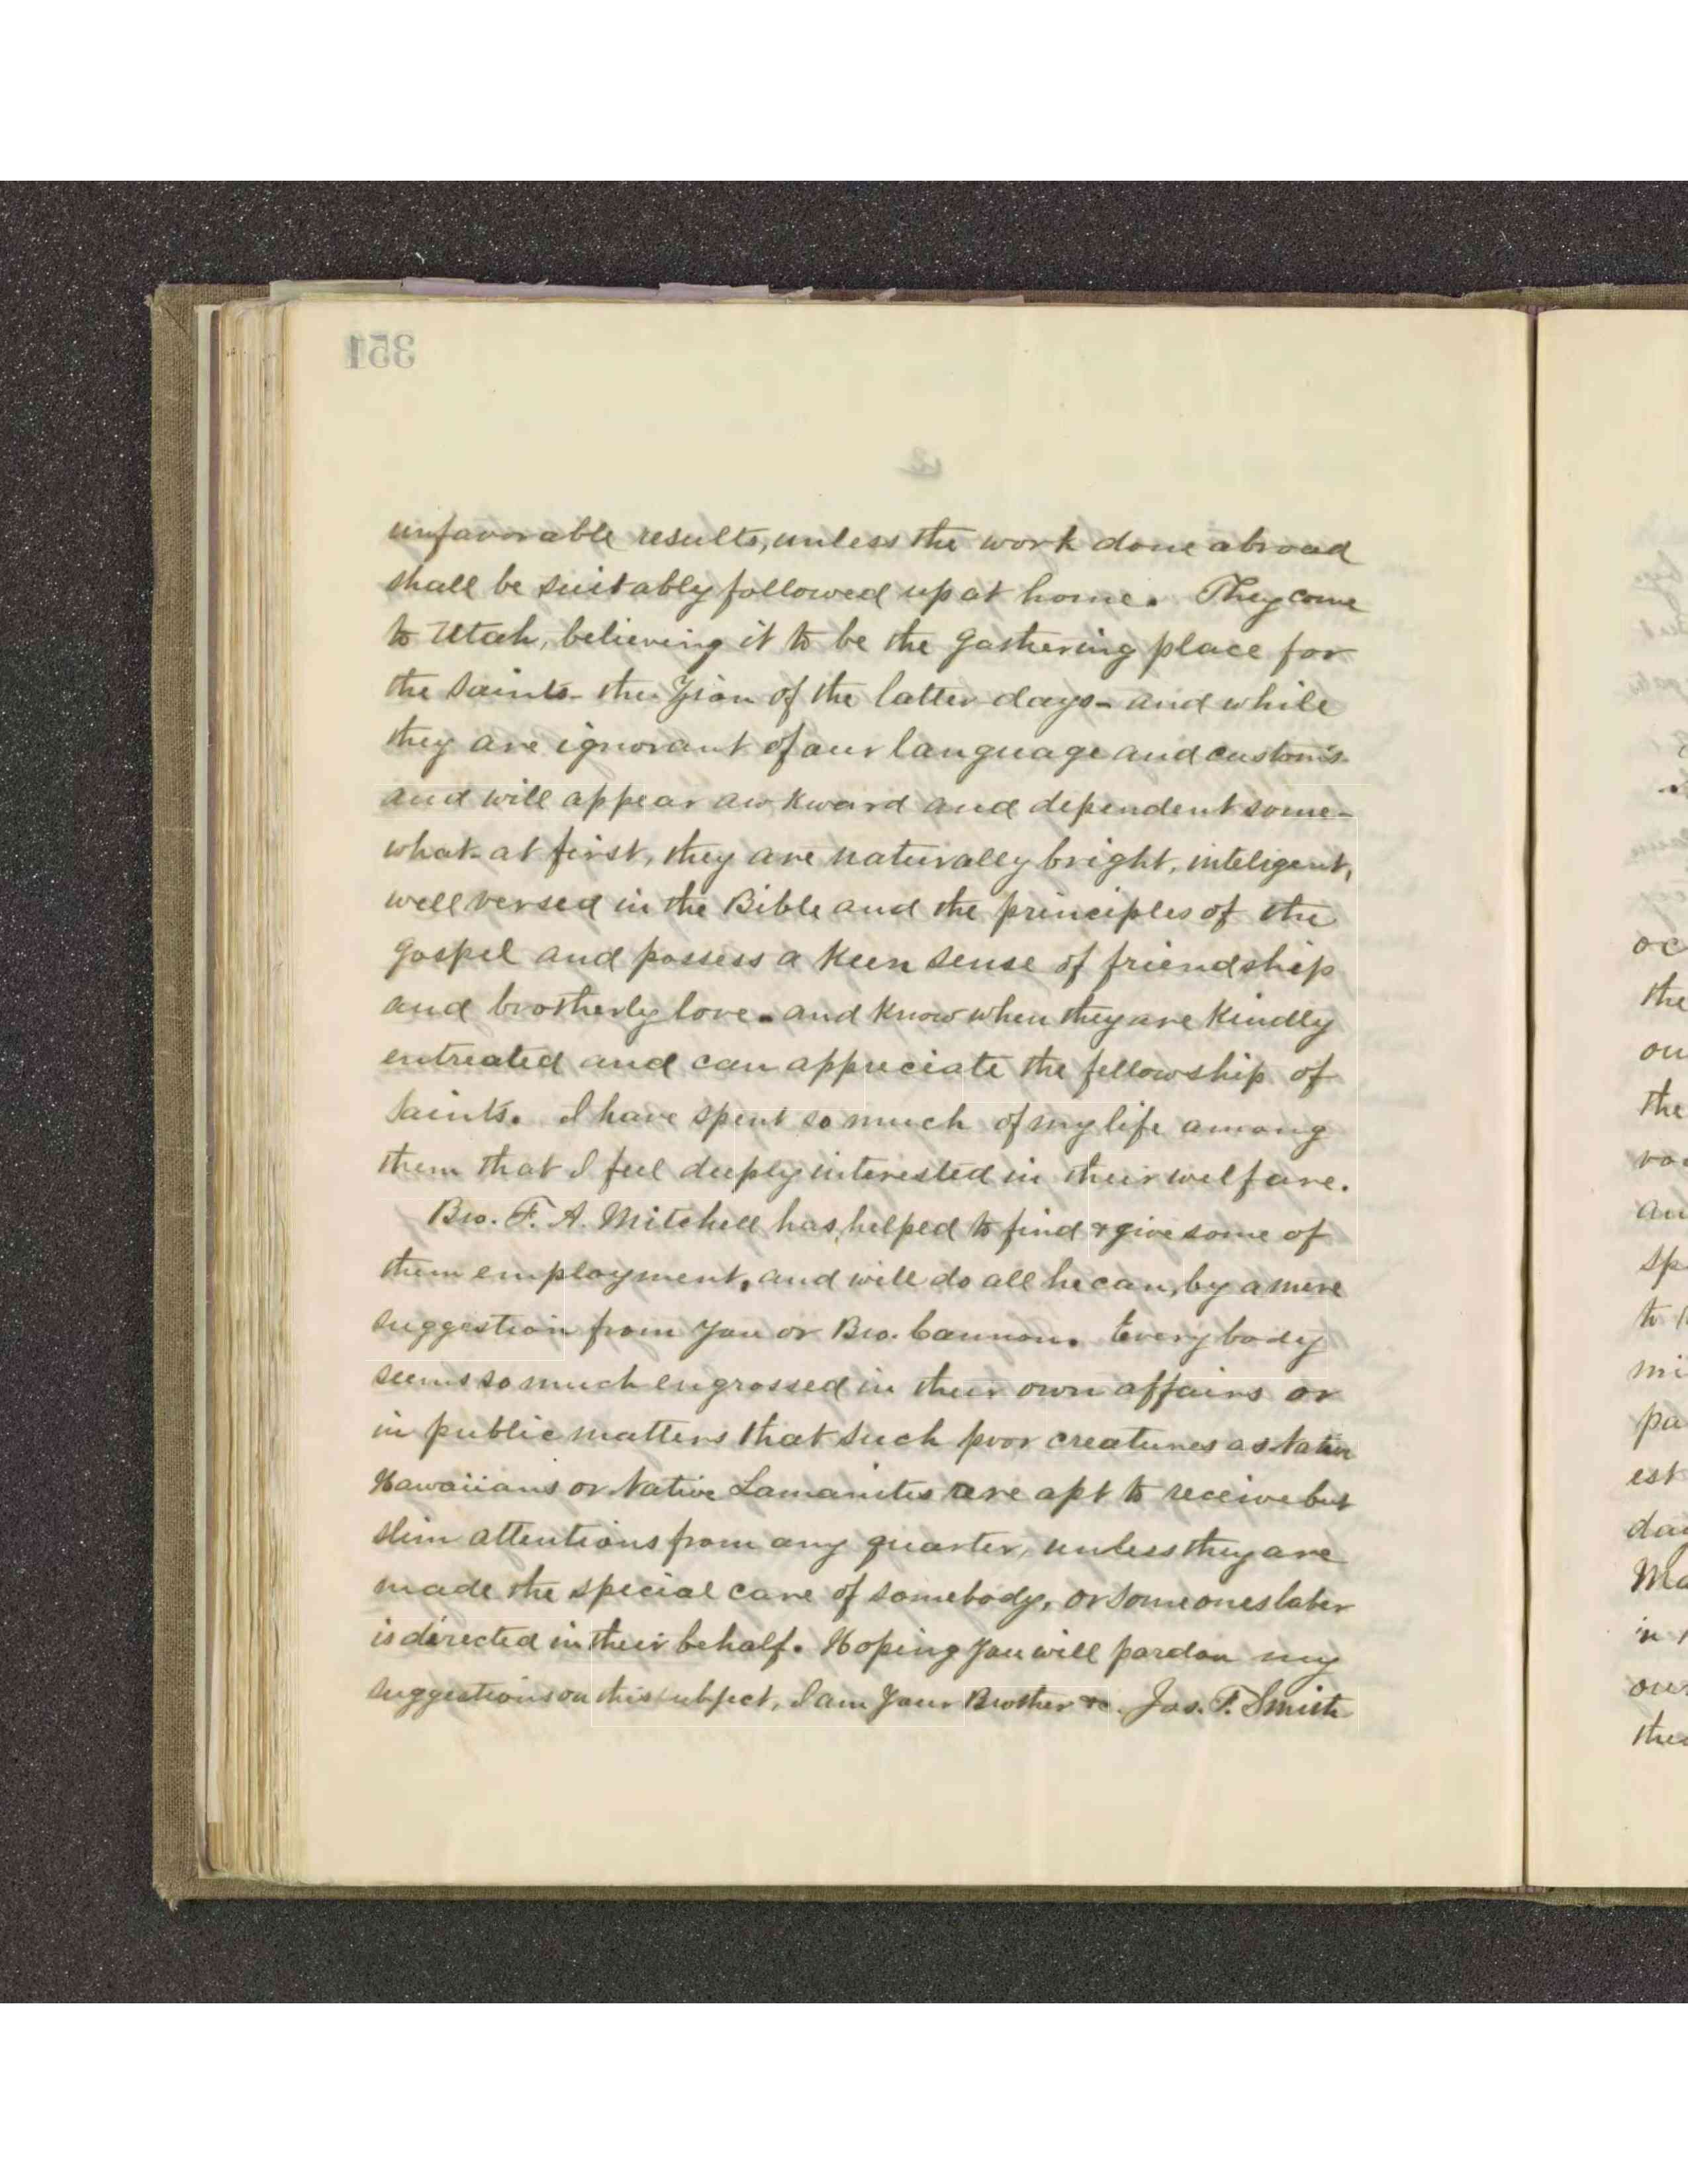 351
2
unfavorable results, unless the work done abroad
shall be suitably followed up at home. They come
to Utah, believing it to be the gathering place for
the Saints - the Zion of the latter-days - and while
they are ignorant of our language and customs
and will appear awkward and dependent some-
what at first, they are naturally bright, inteligent,
well versed in the Bible and the principles of the
gospel and possess a keen sense of friendship
and brotherly love - and know when they are kindly
entreated and can appreciate the fellowship of
Saints. I have spent so much of my life among
them that I feel deeply interested in their welfare.
Bro. F. A. Mitchell has helped to find & give some of
them employment, and will do all he can, by a mere
suggestion from you or Bro. Cannon. Every body
seems so much engrossed in their own affairs or
in public matters that such poor creatures as Native
Hawaiians or Native Lamanites are apt to receive but
slim attentions from any quarter, unless they are
made the special care of somebody, or someones labor
is directed in their behalf. Hoping you will pardon my
suggestions on this subject, I am Your Brother &c. Jos. F. Smith
oc
the
ou
the
an
sp
to
mi
pa
est
da
Ma
in
our
the